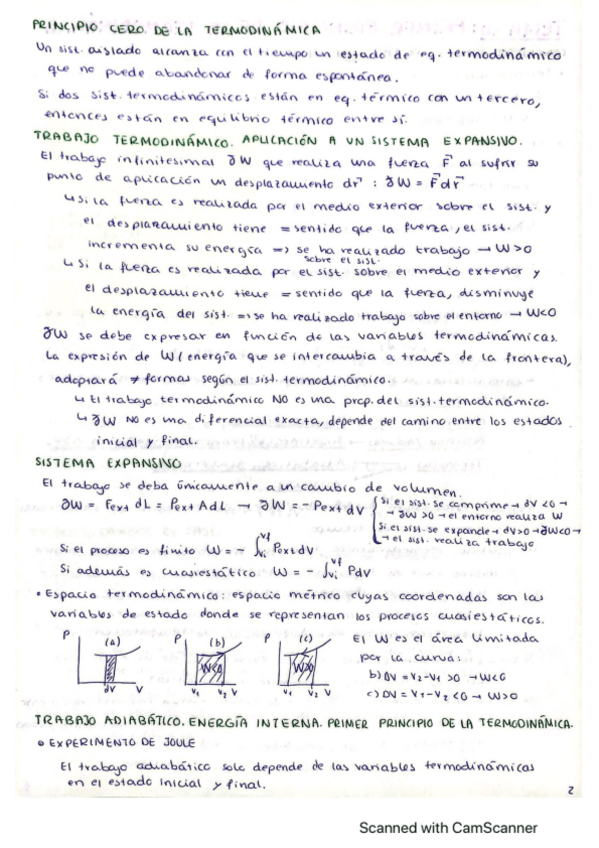 PRINCIPIO CERO DE LA TERMODINÁMICA
Un sist. aislado alcanza con el tiempo un estado de eq. termodinámico
que no puede abandonar de forma espontánea.
Si dos sist. termodinámicos están en eq. térmico con un tercero,
entonces están en equilibrio térmico entre sí.
TRABAJO TERMODINÁMICO. APLICACIÓN A UN SISTEMA EXPANSIVO.
El trabajo infinitesimal ∂W que realiza una fuerza F⃗ al sufrir su
punto de aplicación un desplazamiento dr⃗ : ∂W = F⃗dr⃗
↳ Si la fuerza es realizada por el medio exterior sobre el sist. y
el desplazamiento tiene = sentido que la fuerza, el sist.
incrementa su energía => se ha realizado trabajo → W>0
sobre el sist.
↳ Si la fuerza es realizada por el sist. sobre el medio exterior y
el desplazamiento tiene = sentido que la fuerza, disminuye
la energía del sist. => se ha realizado trabajo sobre el entorno → W<0
∂W se debe expresar en función de las variables termodinámicas.
La expresión de W (energía que se intercambia a través de la frontera),
adoptará ≠ formas según el sist. termodinámico.
↳ El trabajo termodinámico NO es una prop. del sist. termodinámico.
↳ ∂W NO es una diferencial exacta, depende del camino entre los estados
inicial y final.
SISTEMA EXPANSIVO
El trabajo se deba únicamente a un cambio de volumen.
∂W = Fext dL = Pext A dL → ∂W = - Pext dV
Si el sist. se comprime → dV <0 →
→ ∂W >0 → el entorno realiza W
Si el sist. se expande → dV>0 → ∂W<0 →
→ el sist. realiza trabajo
Si el proceso es finito W = - ∫Vi Vf Pext dV
Si además es cuasiestático W = - ∫Vi Vf PdV
• Espacio termodinámico: espacio métrico cuyas coordenadas son las
variables de estado donde se representan los procesos cuasiestáticos.
P (a) dV V
P (b) W<0 V1 V2 V
P (c) W>0 V1 V2 V
El W es el área limitada
por la curva:
b) ΔV = V2-V1 >0 → W<0
c) ΔV = V1-V2 <0 → W>0
TRABAJO ADIABÁTICO. ENERGÍA INTERNA. PRIMER PRINCIPIO DE LA TERMODINÁMICA.
• EXPERIMENTO DE JOULE
El trabajo adiabático solo depende de las variables termodinámicas
en el estado inicial y final.
2
Scanned with CamScanner